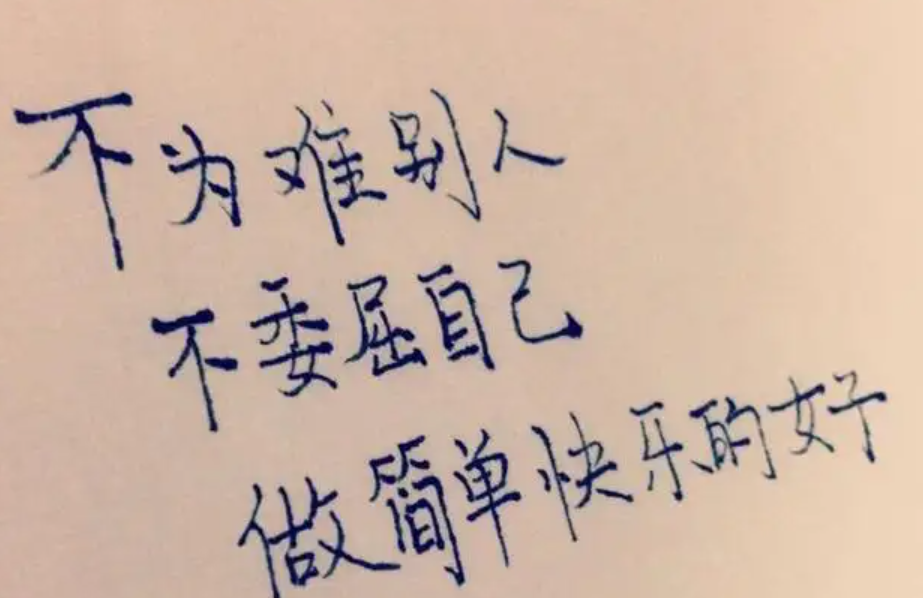 不为难别人
不委屈自己
做简单快乐的好